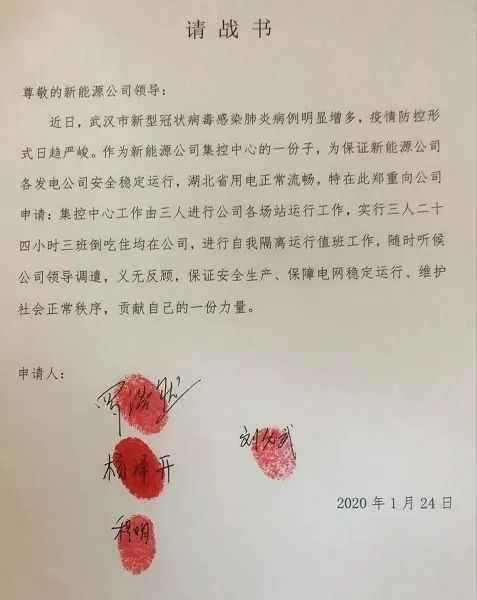 请战书
尊敬的新能源公司领导：
近日，武汉市新型冠状病毒感染肺炎病例明显增多，疫情防控形
式日趋严峻。作为新能源公司集控中心的一份子，为保证新能源公司
各发电公司安全稳定运行，湖北省用电正常流畅，特在此郑重向公司
申请：集控中心工作由三人进行公司各场站运行工作，实行三人二十
四小时三班倒吃住均在公司，进行自我隔离运行值班工作，随时听候
公司领导调遣，义无反顾，保证安全生产、保障电网稳定运行、维护
社会正常秩序，贡献自己的一份力量。
申请人：
杨泽开
程明
2020 年 1 月 24 日